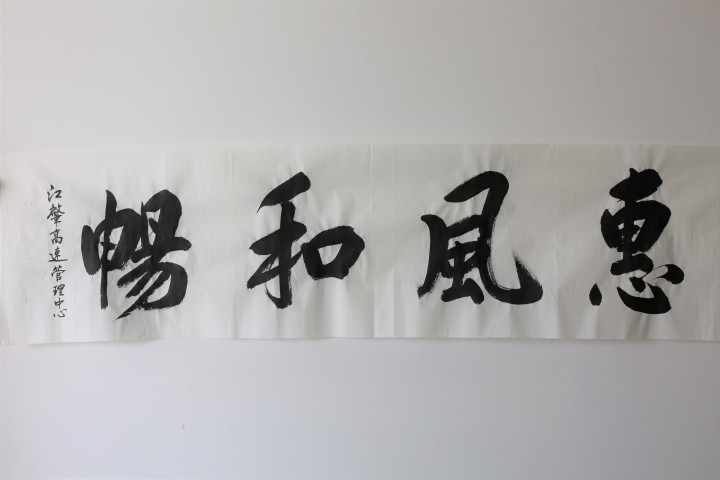 惠風和暢
江肇高速管理中心